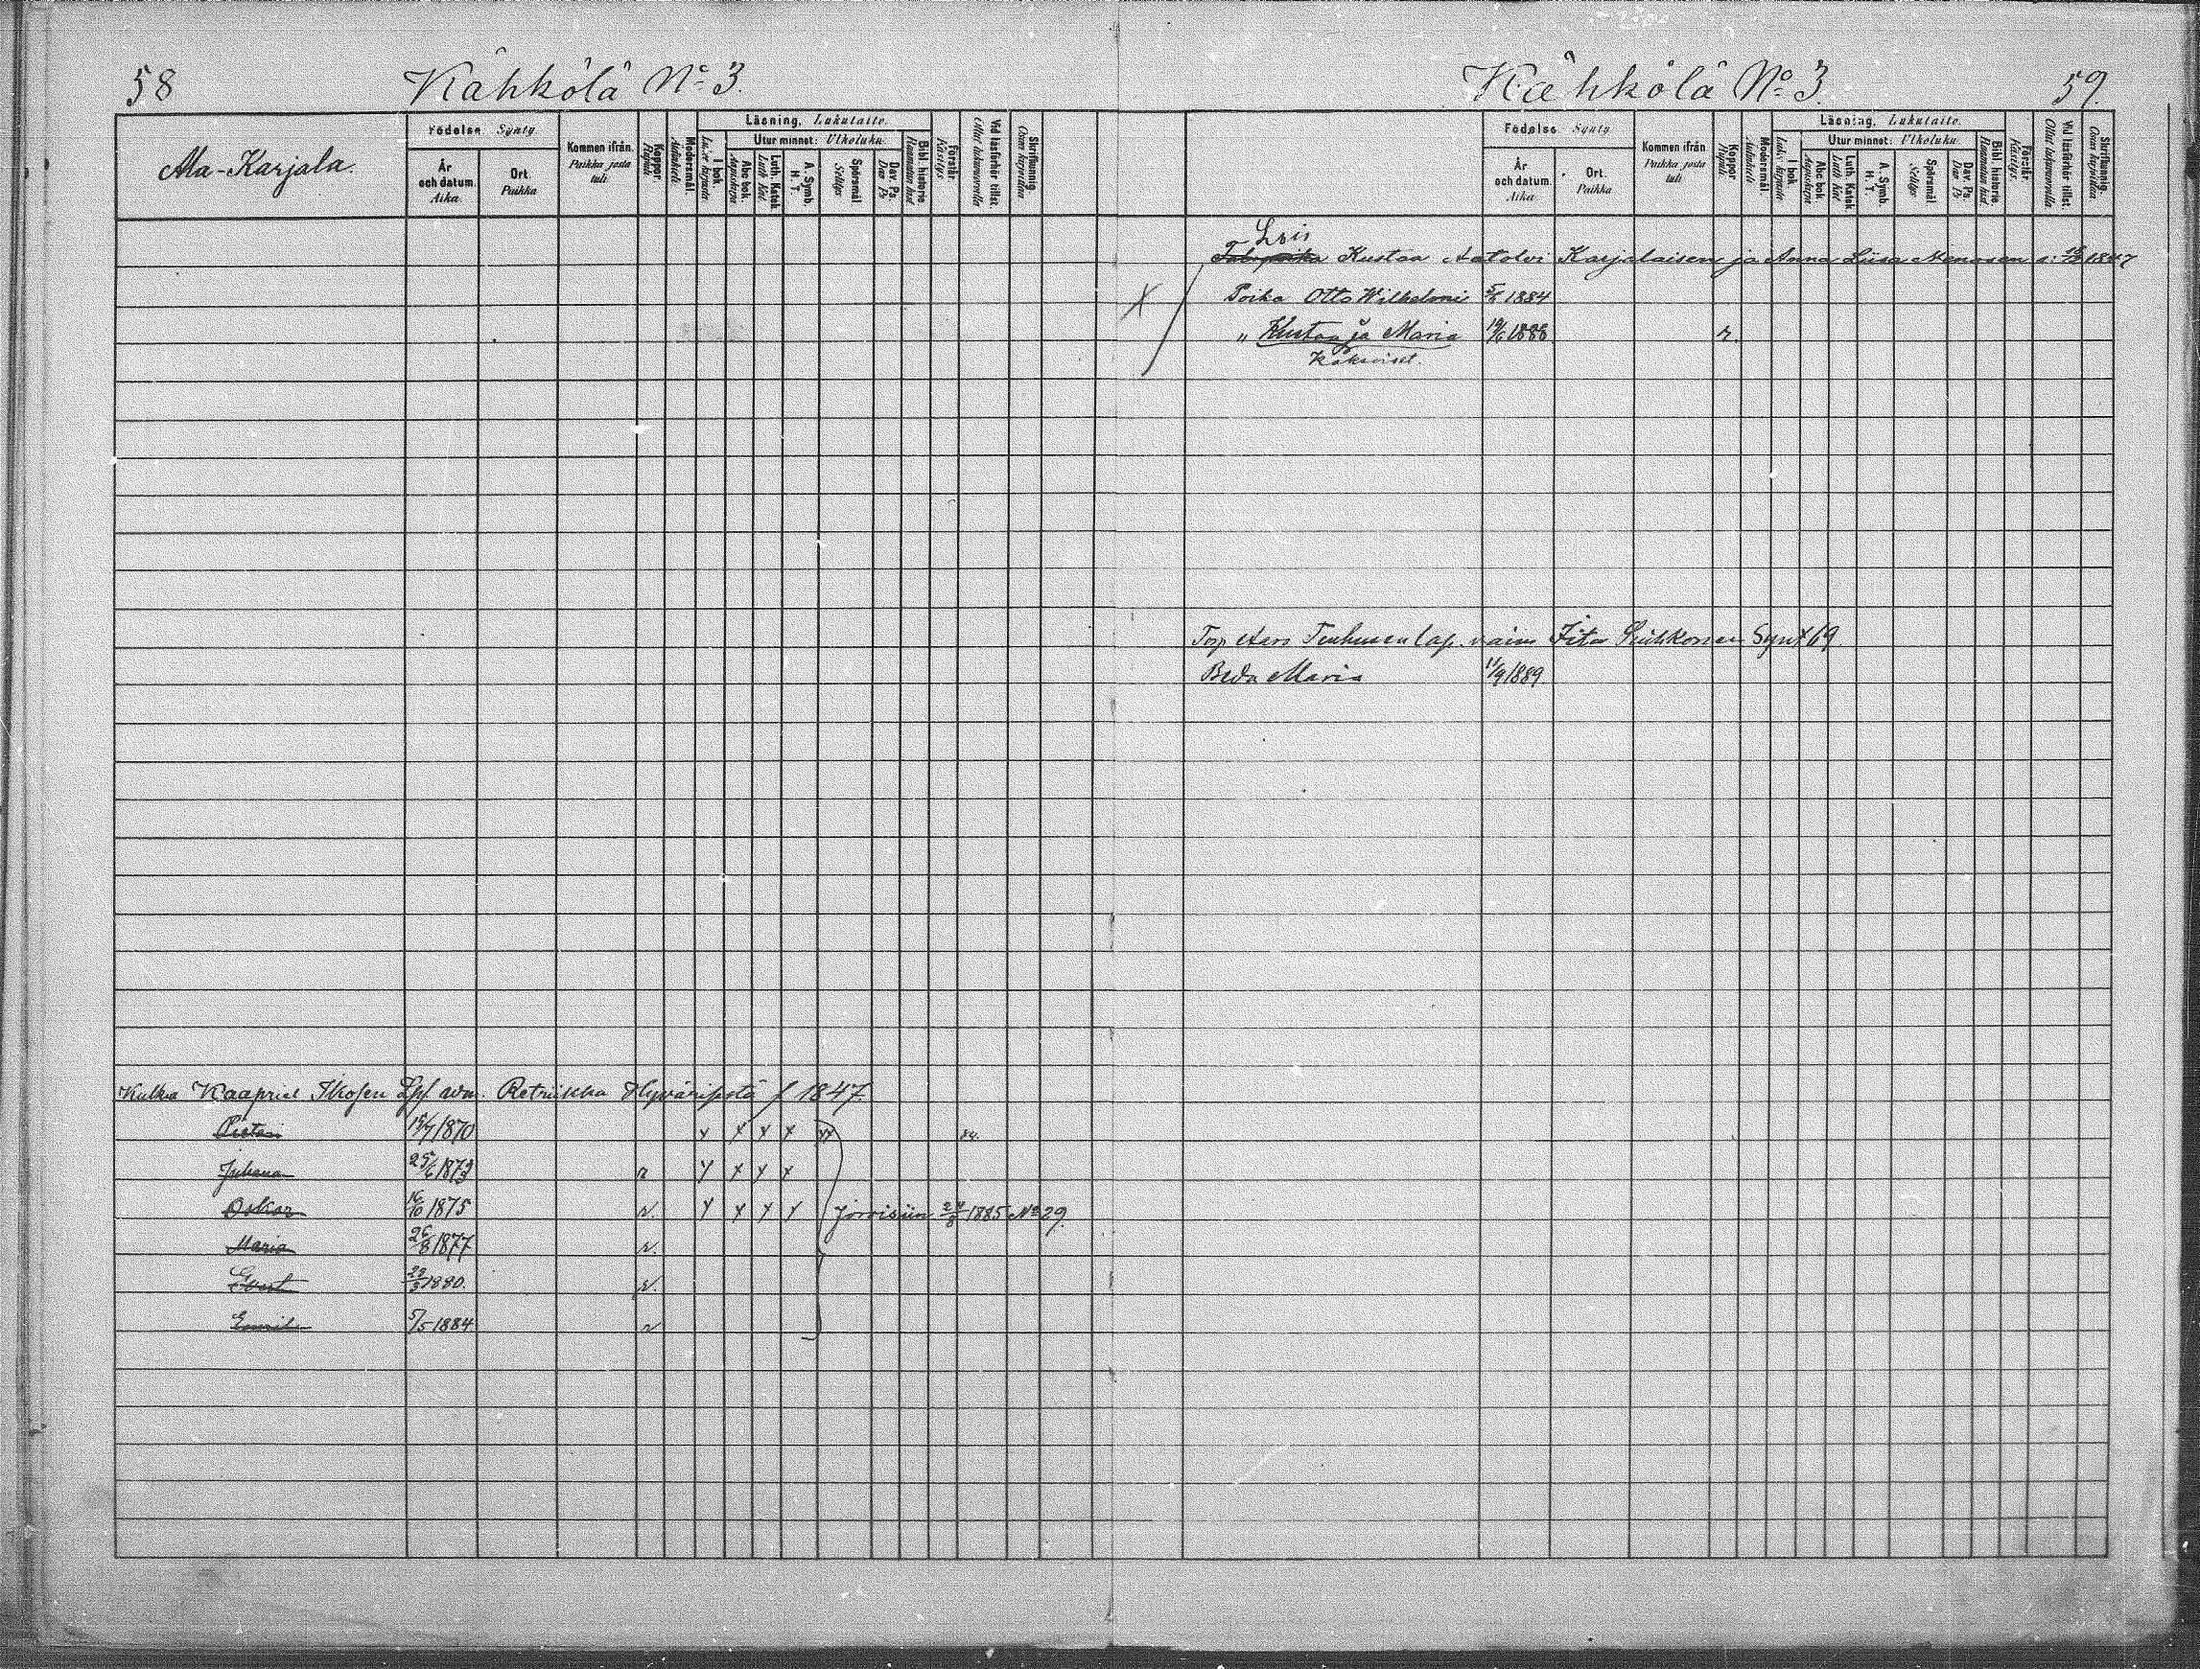 58
Kähkölä No 3.
Ala-Karjala.
Födelse Synty.
År och datum. Aika.
Ort. Paikka
Kommen ifrån. Paikka josta tuli.
Koppor. Rupuli
Modersmål. Äidinkieli
Läsning, Lukutaito.
I bok
Utur minnet: Ulkoluku.
Abc bok.
Luth. Katek.
A. Symb. H. T.
Spörsmål
Dav. Ps.
Bibl. historie.
Förstår. Käsitys
Vid läsförhör tillst.
Skriftkunnig.
Kulkia Kaapriel Ikosen Lps. vdm. Retriikka Hyväristä f 1847.
Pietari 15/7 1870 84.
Juhana 25/6 1873 r
Oskar 16/10 1875 r. Joroisiin 24/8 1885 No 29.
Maria 26/8 1877 r.
Evert 22/3 1880. r.
Emil 5/5 1884 r
Kähkölä No 3.
59.
Födelse Synty
År och datum. Aika
Ort. Paikka
Kommen ifrån. Paikka josta tuli.
Koppor. Rupuli
Modersmål. Äidinkieli
Läsning, Lukutaito.
I bok
Utur minnet: Ulkoluku.
Abc bok
Luth. Katek.
A. Symb. H. T.
Spörsmål
Dav. Ps.
Bibl. historie.
Förstår. Käsitys.
Vid läsförhör tillst.
Skriftkunnig.
Lois
Kustaa Aatolvi Karjalaisen ja Anna Liisa Menosen s: 1847
X Poika Otto Wilhelmi 5/8 1884
" Kustaa ja Maria 19/6 1888 r.
Kaksoiset.
Torp. Aaro Tenhusen lap. vaim Iita Synt 69.
Beda Maria 11/9 1889.